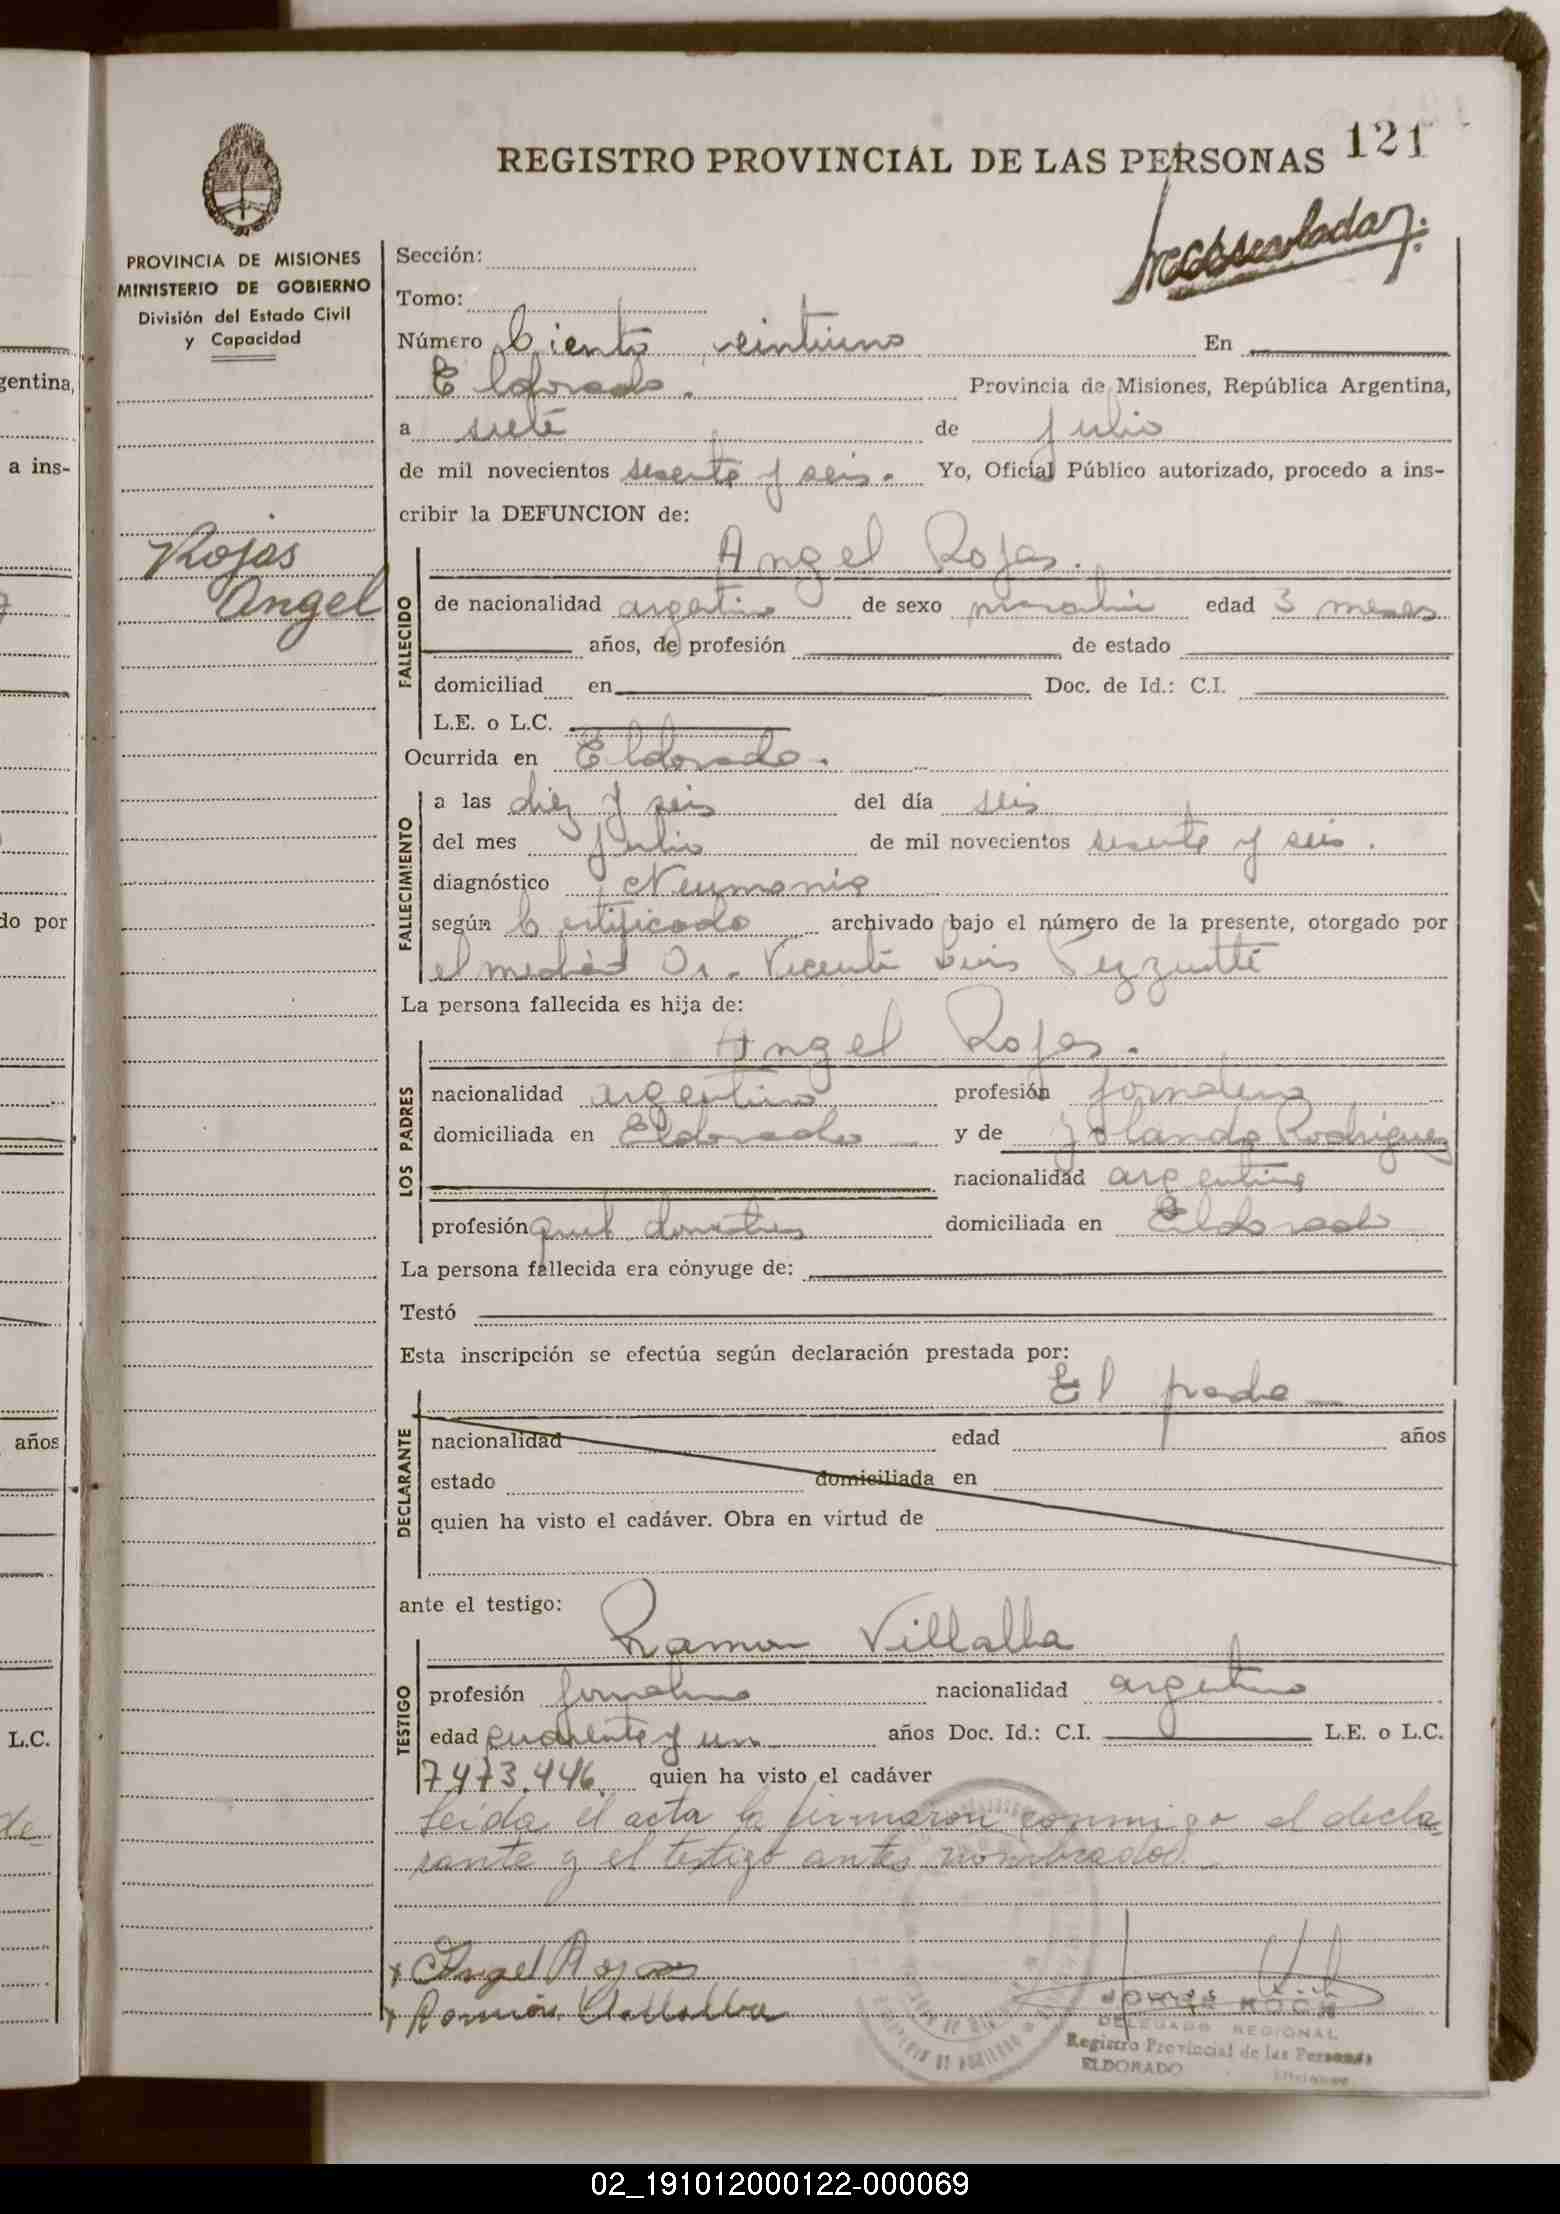 121
REGISTRO PROVINCIAL DE LAS PERSONAS
PROVINCIA DE MISIONES
MINISTERIO DE GOBIERNO
División del Estado Civil
y Capacidad
Rojas
Angel
Sección:
Tomo:
Número Ciento veintiuno En
Eldorado. Provincia de Misiones, República Argentina,
a siete de julio
de mil novecientos sesenta y seis. Yo, Oficial Público autorizado, procedo a ins-
cribir la DEFUNCION de:
Angel Rojas.
FALLECIDO
de nacionalidad argentino de sexo masculino edad 3 meses
años, de profesión de estado
domiciliad en Doc. de Id.: C.I.
L.E. o L.C.
Ocurrida en Eldorado.
FALLECIMIENTO
a las diez y seis del día seis
del mes Julio de mil novecientos sesenta y seis.
diagnóstico Neumonia
según Certificado archivado bajo el número de la presente, otorgado por
el medico Dr. Vicente Luis
La persona fallecida es hija de:
Angel Rojas.
LOS PADRES
nacionalidad argentino profesión jornalero
domiciliada en Eldorado y de Yolanda Rodriguez
nacionalidad argentina
profesión domiciliada en Eldorado
La persona fallecida era cónyuge de:
Testó
Esta inscripción se efectúa según declaración prestada por:
El padre
DECLARANTE
nacionalidad edad años
estado domiciliada en
quien ha visto el cadáver. Obra en virtud de
ante el testigo:
Ramon Villalba
TESTIGO
profesión jornalero nacionalidad argentino
edad cuarenta y un años Doc. Id.: C.I. L.E. o L.C.
7473.446 quien ha visto el cadáver
Leida el acta la firmaron conmigo el decla-
rante y el testigo antes nombrados.
x Angel Rojas
x Ramón Villalba
JORGE KOCH
DELEGADO REGIONAL
Registro Provincial de las Personas
ELDORADO Misiones
gentina,
a ins-
do por
años
L.C.
de
02_191012000122-000069